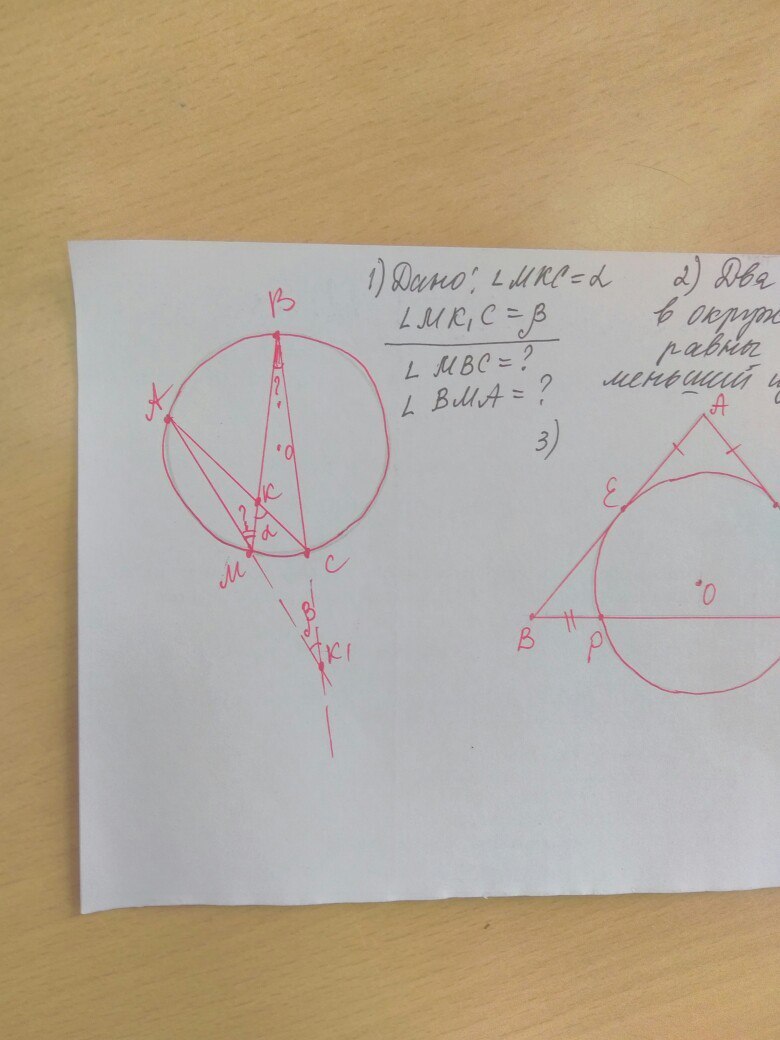 1) Дано: ∠MKC = α
∠MK₁C = β
∠MBC = ?
∠BMA = ?
2) Два
в окруж
равны
меньший
3)
B
A
?
O
K
?
α
M
C
β
K₁
A
E
O
B
P